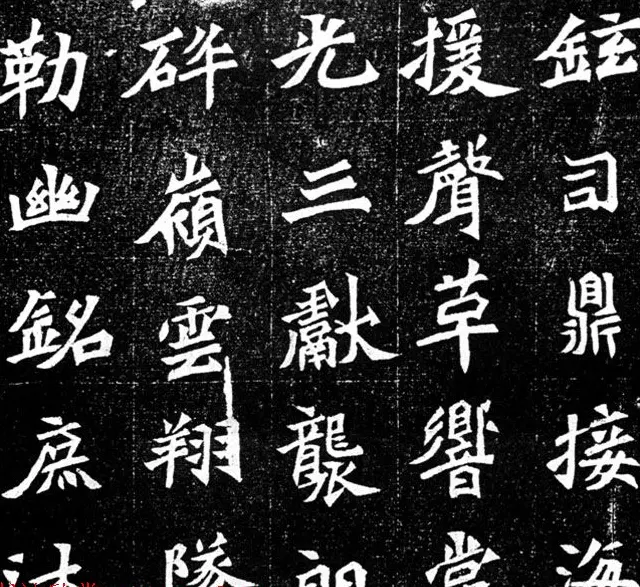 鉉司鼎接海
援聲草響
光三獻襲
砕嶺雲翔
勒幽銘庶